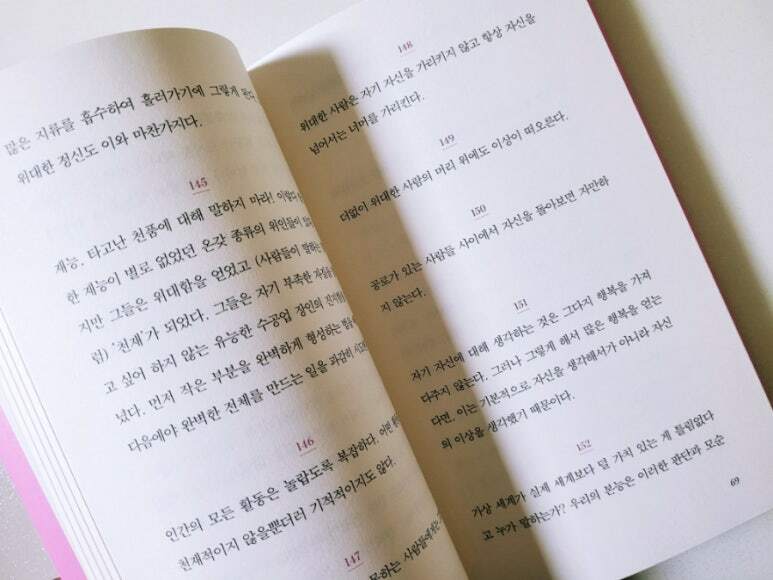 많은 지류를 흡수하여 흘러가기에 그렇게 된다.
위대한 정신도 이와 마찬가지다.
145
재능, 타고난 천품에 대해 말하지 마라! 이렇다
한 재능이 별로 없었던 온갖 종류의 위인들이
지만 그들은 위대함을 얻었고 (사람들이 말하는
럼) ‘천재’가 되었다. 그들은 자기 부족한
고 싶어 하지 않는 유능한 수공업 장인의
녔다. 먼저 작은 부분을 완벽하게 형성하는
다음에야 완벽한 전체를 만드는 일을 과감히
146
인간의 모든 활동은 놀랍도록 복잡하다.
천재적이지 않을뿐더러 기적적이지도 않다.
147
하는 사람들에게
148
위대한 사람은 자기 자신을 가리키지 않고 항상 자신을
넘어서는 너머를 가리킨다.
149
더없이 위대한 사람의 머리 위에도 이상이 떠오른다.
150
공로가 있는 사람들 사이에서 자신을 돌아보면 자만하
지 않는다.
151
자기 자신에 대해 생각하는 것은 그다지 행복을 가져
다주지 않는다. 그러나 그렇게 해서 많은 행복을 얻는
다면, 이는 기본적으로 자신을 생각해서가 아니라 자신
의 이상을 생각했기 때문이다.
152
가상 세계가 실제 세계보다 덜 가치 있는 게 틀림없다
고 누가 말하는가? 우리의 본능은 이러한 판단과 모순
69